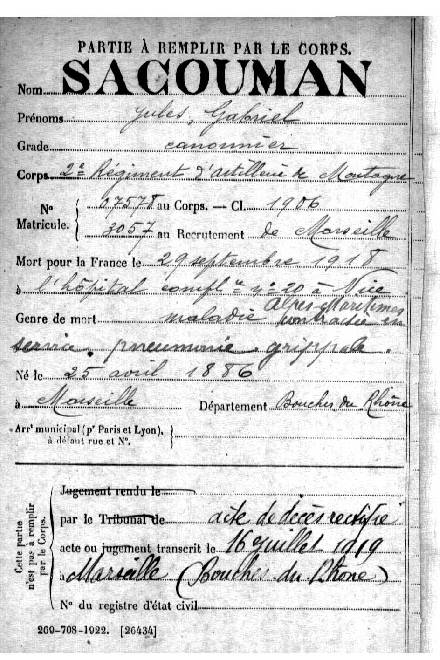 PARTIE À REMPLIR PAR LE CORPS.
Nom SACOUMAN
Prénoms Jules, Gabriel
Grade canonnier
Corps 2e Régiment d'artillerie de Montagne
N° 17578 au Corps. — Cl. 1906
Matricule. 3057 au Recrutement de Marseille
Mort pour la France le 29 septembre 1918
à l'hôpital complre n° 20 à Nice
Alpes Maritimes
Genre de mort maladie contractée en
service, pneumonie grippale.
Né le 25 avril 1886
à Marseille Département Bouches du Rhône
Arrt municipal (pr Paris et Lyon),
à défaut rue et N°.
Cette partie
n'est pas à remplir
par le Corps.
Jugement rendu le
par le Tribunal de acte de décès rectifié
acte ou jugement transcrit le 16 juillet 1919
à Marseille (Bouches du Rhône)
N° du registre d'état civil
260-708-1922. [26434]